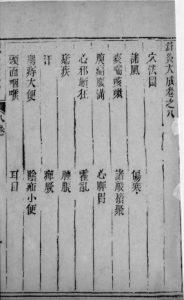 鍼灸大成卷之八
穴法圖
諸風 傷寒
痰喘咳嗽 諸般積聚
腹痛脹滿 心脾胃
心邪癲狂 霍亂
瘧疾 腫脹
汗 痹厥
腸痔大便 陰疝小便
頭面咽喉 耳目
八卷